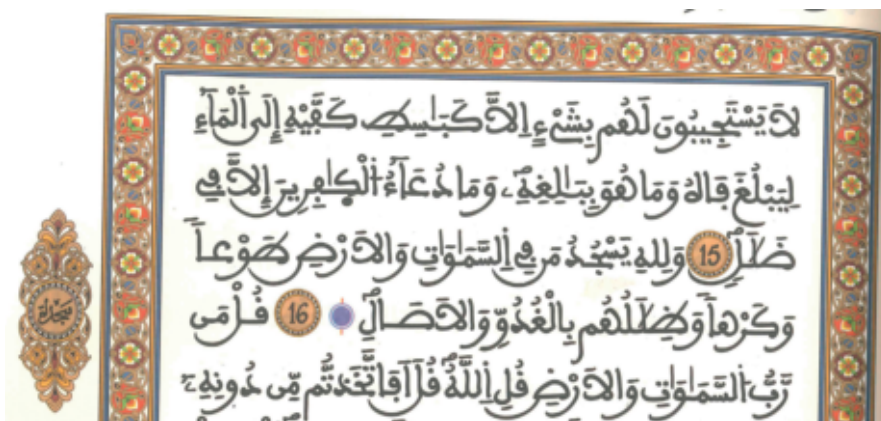 لَا يَسْتَجِيبُونَ لَهُم بِشَيْءٍ اِلَّا كَبَٰسِطِ كَفَّيْهِ إِلَى اَ۬لْمَآءِ
لِيَبْلُغَ فَاهُ وَمَا هُوَ بِبَٰلِغِهِۦ وَمَا دُعَآءُ اُ۬لْكٰ۪فِرِينَ إِلَّا فِے
ضَلَٰلٖ 15 وَلِلهِ يَسْجُدُ مَن فِے اِ۬لسَّمَٰوَٰتِ وَالَارْضِ طَوْعاٗ
وَكَرْهاٗ وَظِلَٰلُهُم بِالْغُدُوِّ وَالَاصَالِ 16 قُلْ مَن
رَّبُّ اُ۬لسَّمَٰوَٰتِ وَالَارْضِ قُلِ اِ۬للَّهُ قُلَ اَفَاتَّخَذتُّم مِّن دُونِهِۦٓ
سجدة